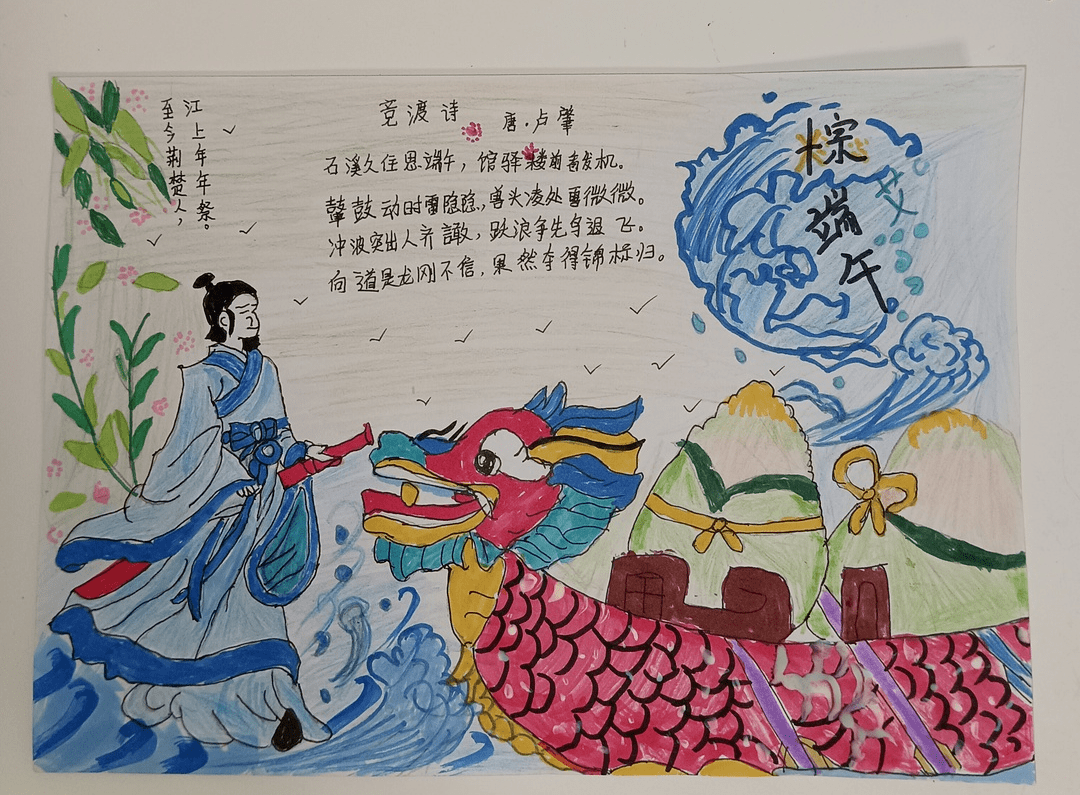 至今荆楚人，
江上年年祭。
竞渡诗
唐·卢肇
石溪久住思端午，馆驿楼前看发机。
鼙鼓动时雷隐隐，兽头凌处雪微微。
冲波突出人齐譀，跃浪争先鸟退飞。
向道是龙刚不信，果然夺得锦标归。
粽端午
艾